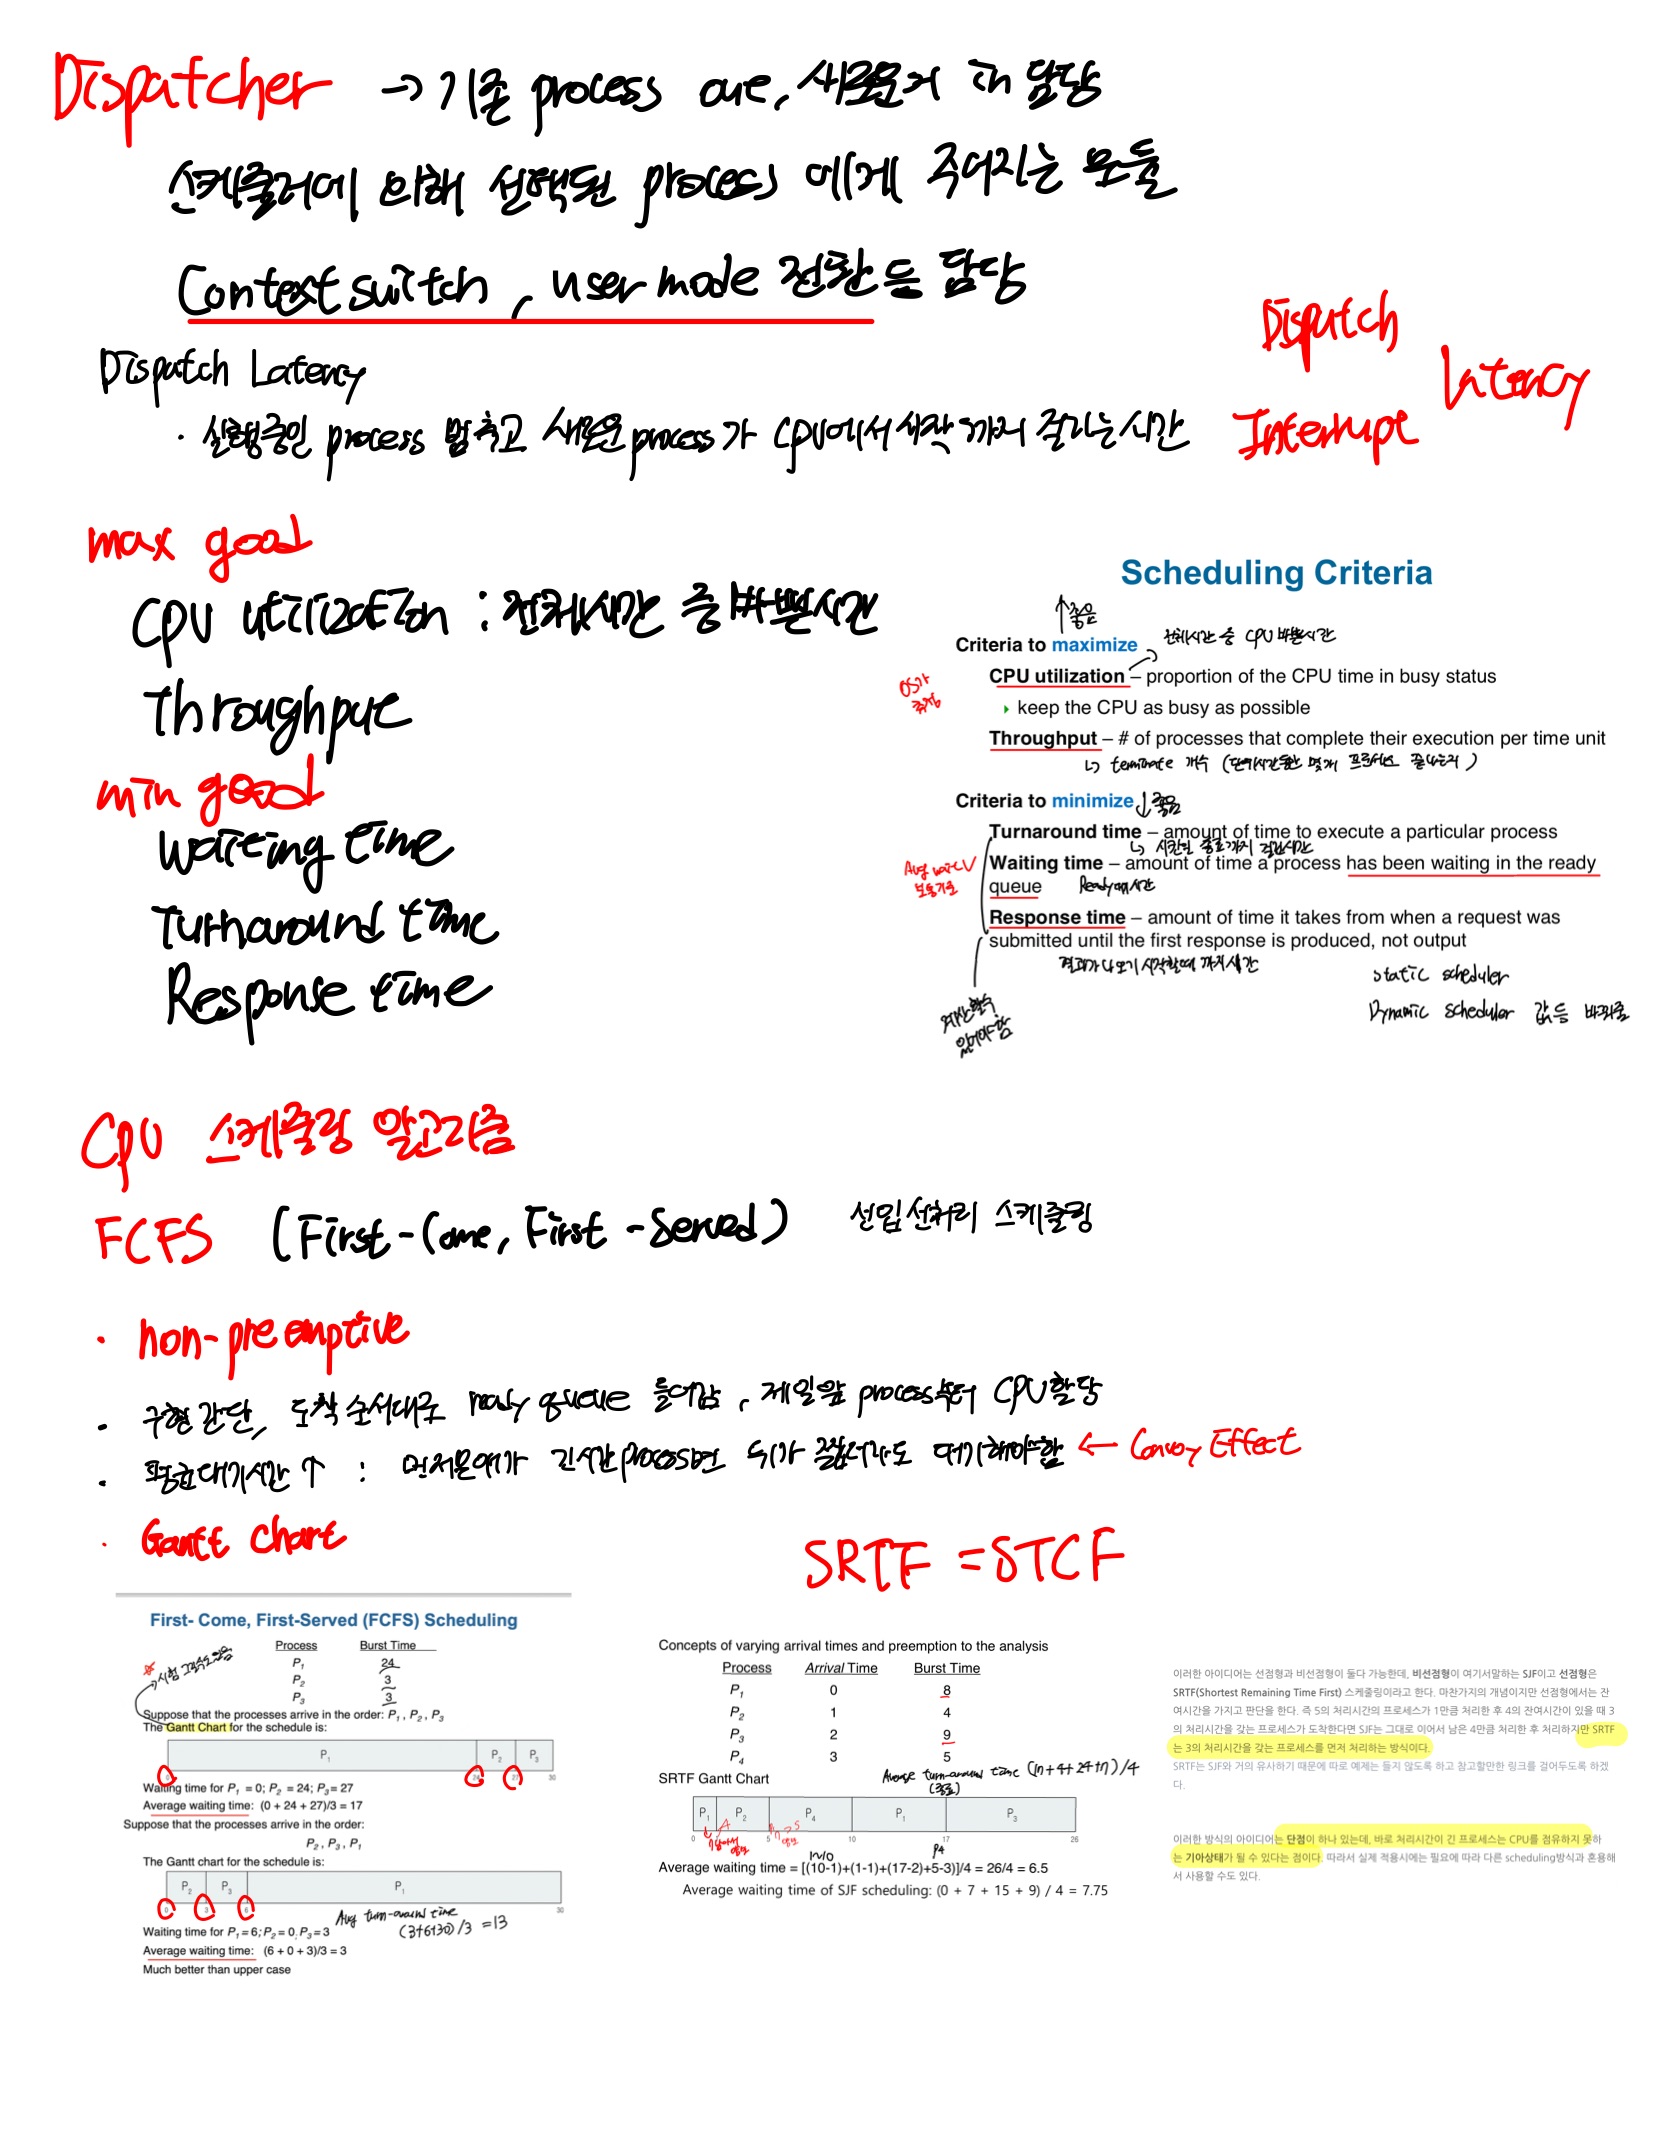 Dispatcher → 기존 process out, 새로운거 in 담당
스케줄러에 의해 선택된 process 에게 주어지는 모듈
Context switch, user mode 전환 등 담당
Dispatch Latency
· 실행중인 process 멈추고 새로운 process가 CPU에서 시작까지 걸리는 시간
Dispatch
Interrupt
latency
max good
CPU utilization : 전체시간 중 바쁜시간
Throughput
min good
Waiting time
Turnaround time
Response time
Scheduling Criteria
↑좋음
Criteria to maximize
전체시간 중 CPU 바쁜시간
OS가
CPU utilization – proportion of the CPU time in busy status
keep the CPU as busy as possible
Throughput – # of processes that complete their execution per time unit
↳ terminate 개수 (단위시간동안 몇개 프로세스 끝나는지)
Criteria to minimize ↓좋음
Turnaround time – amount of time to execute a particular process
↳ 시간 종료까지 걸린시간
Avg wait
Waiting time – amount of time a process has been waiting in the ready
queue Ready 시간
Response time – amount of time it takes from when a request was
submitted until the first response is produced, not output
결과가 나오기 시작할때 까지 시간
계산할수
있어야함
static scheduler
Dynamic scheduler 값등 바꿔줌
CPU 스케줄링 알고리즘
FCFS (First-Come, First-Served) 선입선처리 스케줄링
· non-preemptive
· 구현 간단, 도착 순서대로 ready queue 들어감, 제일앞 process부터 CPU할당
· 평균대기시간 ↑ : 먼저온애가 긴시간process면 뒤가 짧더라도 대기해야함 ← Convoy Effect
· Gantt Chart
First- Come, First-Served (FCFS) Scheduling
Process Burst Time
P1 24
P2 3
P3 3
시험
Suppose that the processes arrive in the order: P1 , P2 , P3
The Gantt Chart for the schedule is:
P1 P2 P3
0 24 27 30
Waiting time for P1 = 0; P2 = 24; P3 = 27
Average waiting time: (0 + 24 + 27)/3 = 17
Suppose that the processes arrive in the order:
P2 , P3 , P1
The Gantt chart for the schedule is:
P2 P3 P1
0 3 6 30
Avg turn-around time
(3+6+30)/3 = 13
Waiting time for P1 = 6; P2 = 0; P3 = 3
Average waiting time: (6 + 0 + 3)/3 = 3
Much better than upper case
SRTF = STCF
Concepts of varying arrival times and preemption to the analysis
Process Arrival Time Burst Time
P1 0 8
P2 1 4
P3 2 9
P4 3 5
SRTF Gantt Chart
Average turn-around time (17+4+24+7)/4
(종료)
P1 P2 P4 P1 P3
0 5 10 17 26
P4
Average waiting time = [(10-1)+(1-1)+(17-2)+5-3)]/4 = 26/4 = 6.5
Average waiting time of SJF scheduling: (0 + 7 + 15 + 9) / 4 = 7.75
이러한 아이디어는 선점형과 비선점형이 둘다 가능한데, 비선점형이 여기서말하는 SJF이고 선점형은
SRTF(Shortest Remaining Time First) 스케줄링이라고 한다. 마찬가지의 개념이지만 선점형에서는 잔
여시간을 가지고 판단을 한다. 즉 5의 처리시간의 프로세스가 1만큼 처리한 후 4의 잔여시간이 있을 때 3
의 처리시간을 갖는 프로세스가 도착한다면 SJF는 그대로 이어서 남은 4만큼 처리한 후 처리하지만 SRTF
는 3의 처리시간을 갖는 프로세스를 먼저 처리하는 방식이다.
SRTF는 SJF와 거의 유사하기 때문에 따로 예제는 들지 않도록 하고 참고할만한 링크를 걸어두도록 하겠
다.
이러한 방식의 아이디어는 단점이 하나 있는데, 바로 처리시간이 긴 프로세스는 CPU를 점유하지 못하
는 기아상태가 될 수 있다는 점이다. 따라서 실제 적용시에는 필요에 따라 다른 scheduling방식과 혼용해
서 사용할 수도 있다.